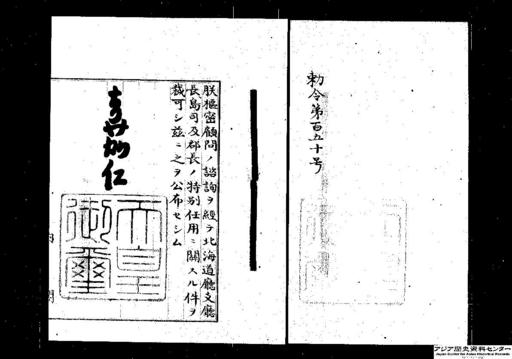 勅令第百五十号
朕樞密顧問ノ諮詢ヲ經テ北海道廳支廳
長島司及郡長ノ特別任用ニ關スル件ヲ
裁可シ茲ニ之ヲ公布セシム
睦仁
天皇
御璽
内閣
アジア歴史資料センター
Japan Center for Asian Historical Records